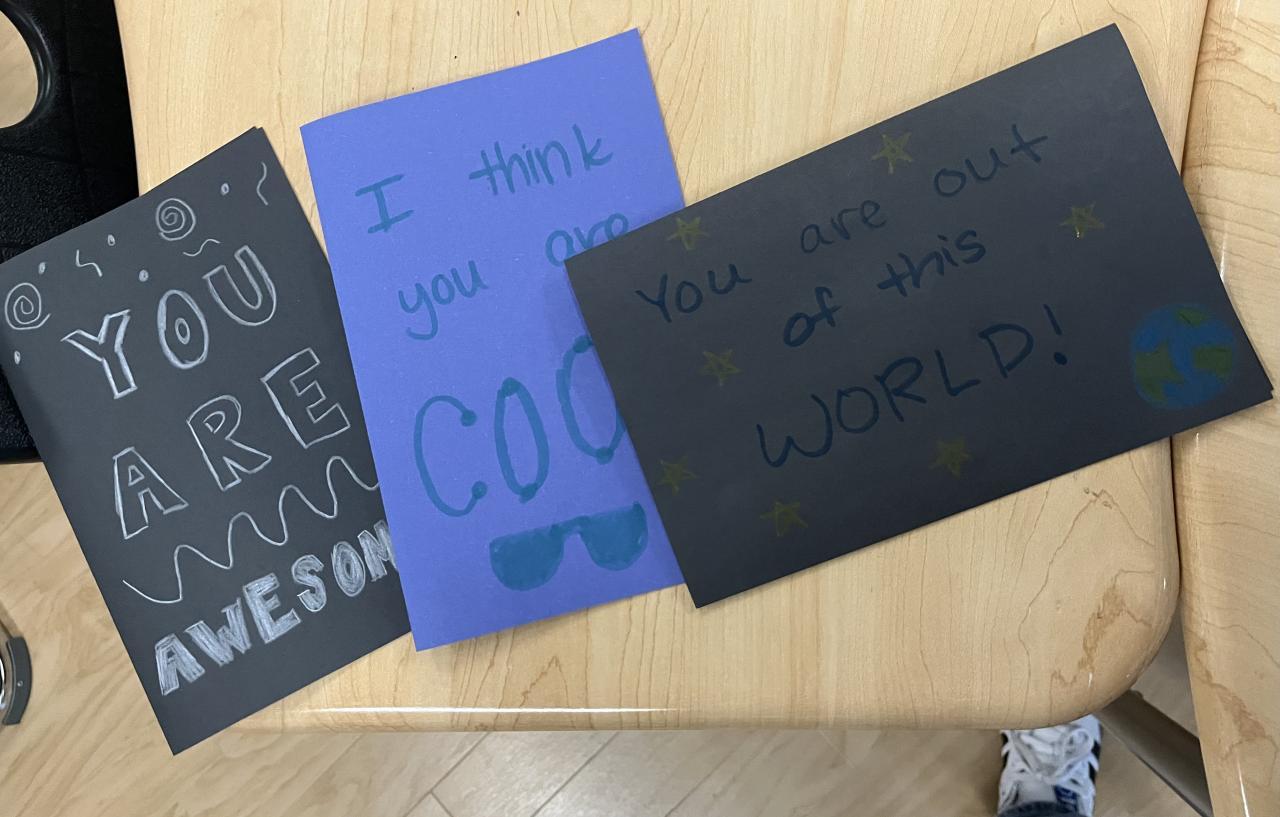 YOU
ARE
AWESOM
I think
you are
COO
You are out
of this
WORLD!